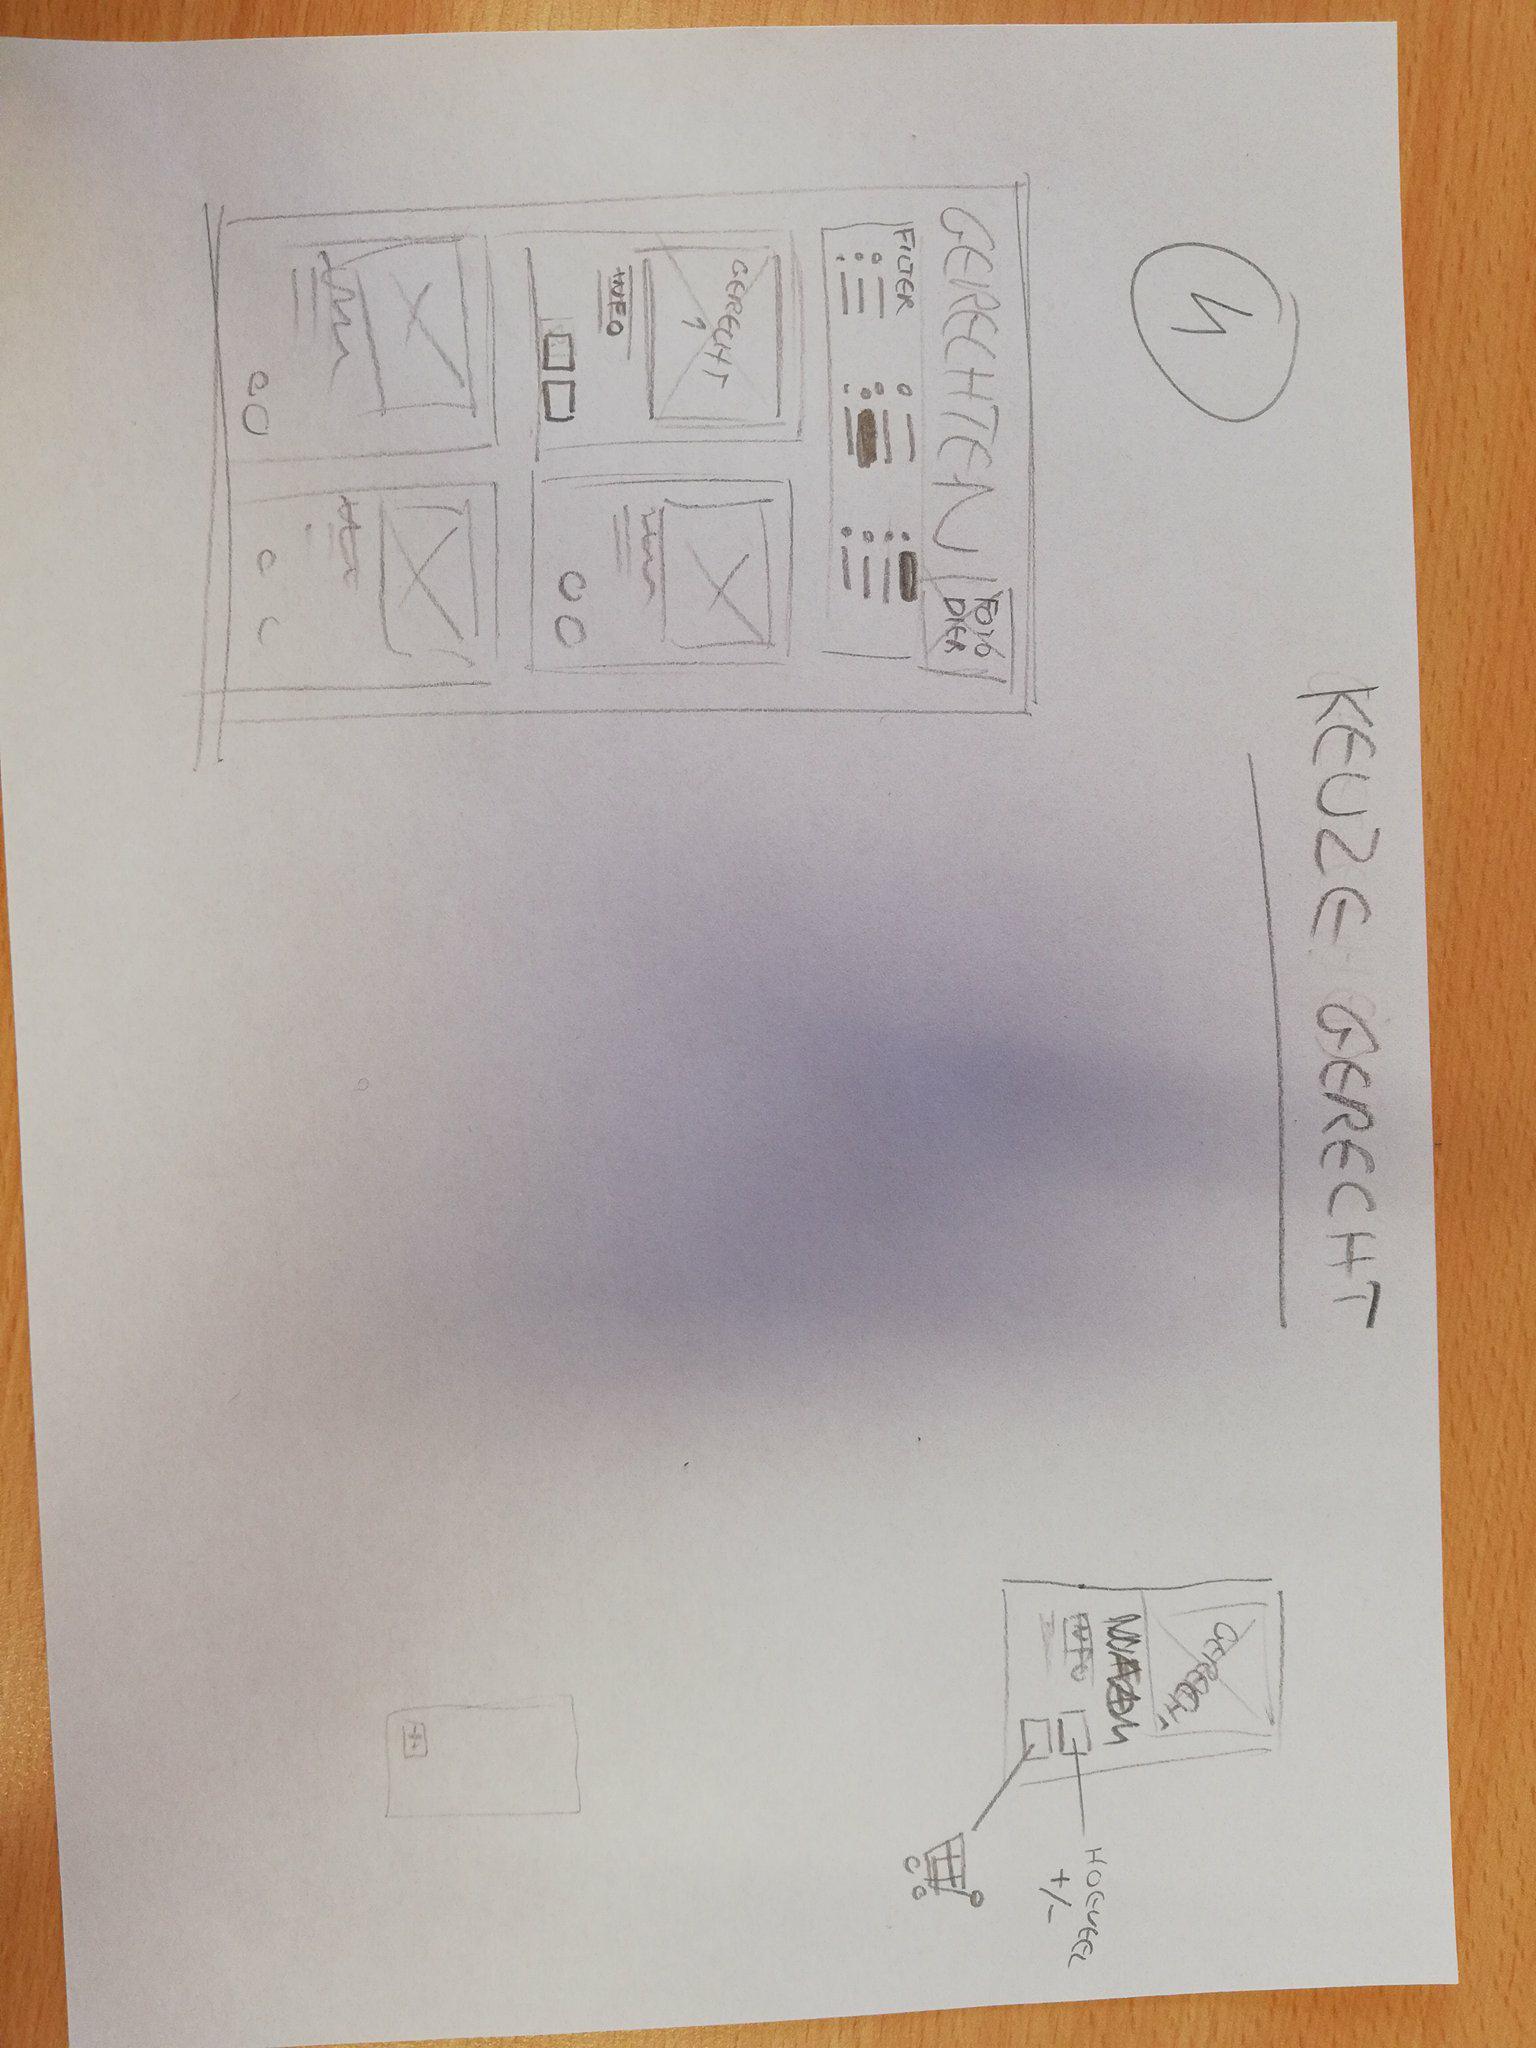 KEUZE GERECHT
4
GERECHTEN
FOTO
DIER
FILTER
GERECHT
1
INFO
GERECHT
NAAM
INFO
HOEVEEL
+/-